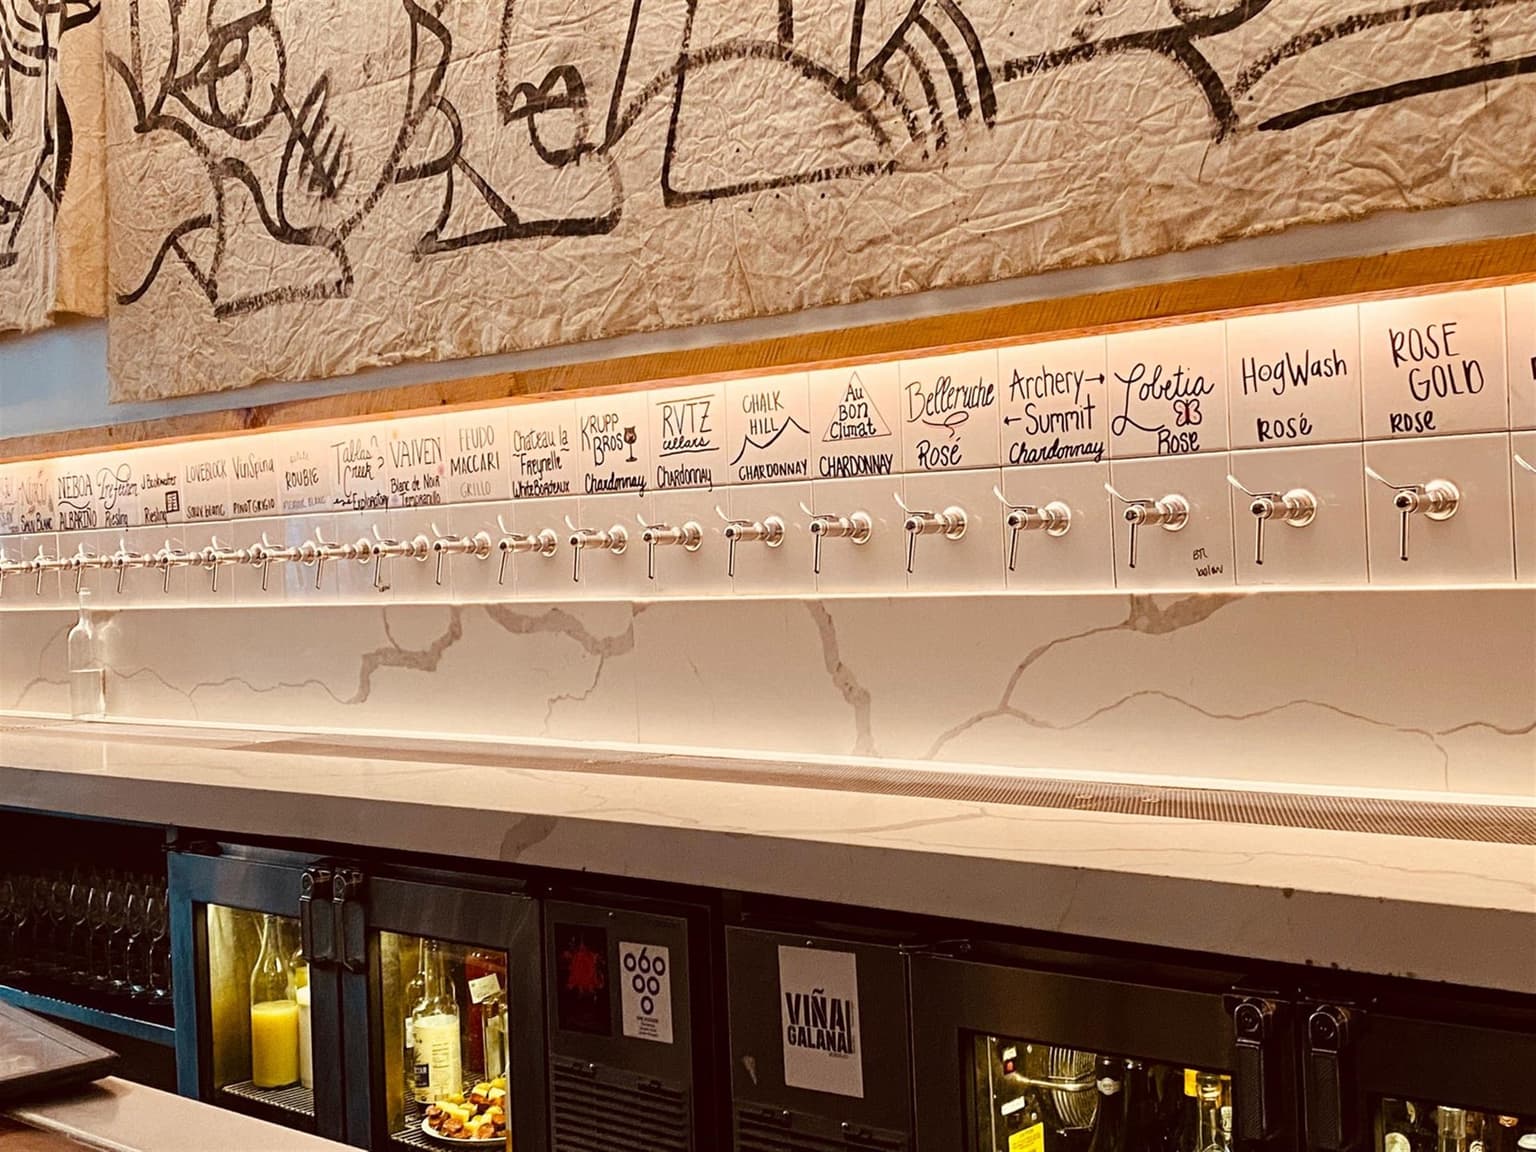 SAUV BLANC
NÉBOA
ALBARIÑO
Riesling
J. Bookwalter
Riesling
LOVEBLOCK
SAUV BLANC
VinSpina
PINOT GRIGIO
ROUBIE
Tablas
Creek
VAIVEN
Blanc de Noir
Tempranillo
FEUDO
MACCARI
GRILLO
Château la
Freynelle
White Bordeaux
KRUPP
BROS
Chardonnay
RVTZ
cellars
Chardonnay
CHALK
HILL
CHARDONNAY
Au
BON
Climat
CHARDONNAY
Belleruche
Rosé
Archery
Summit
Chardonnay
Lobetia
Rosé
HogWash
Rosé
ROSE
GOLD
ROSE
BTL
below
VIÑA
GALANA